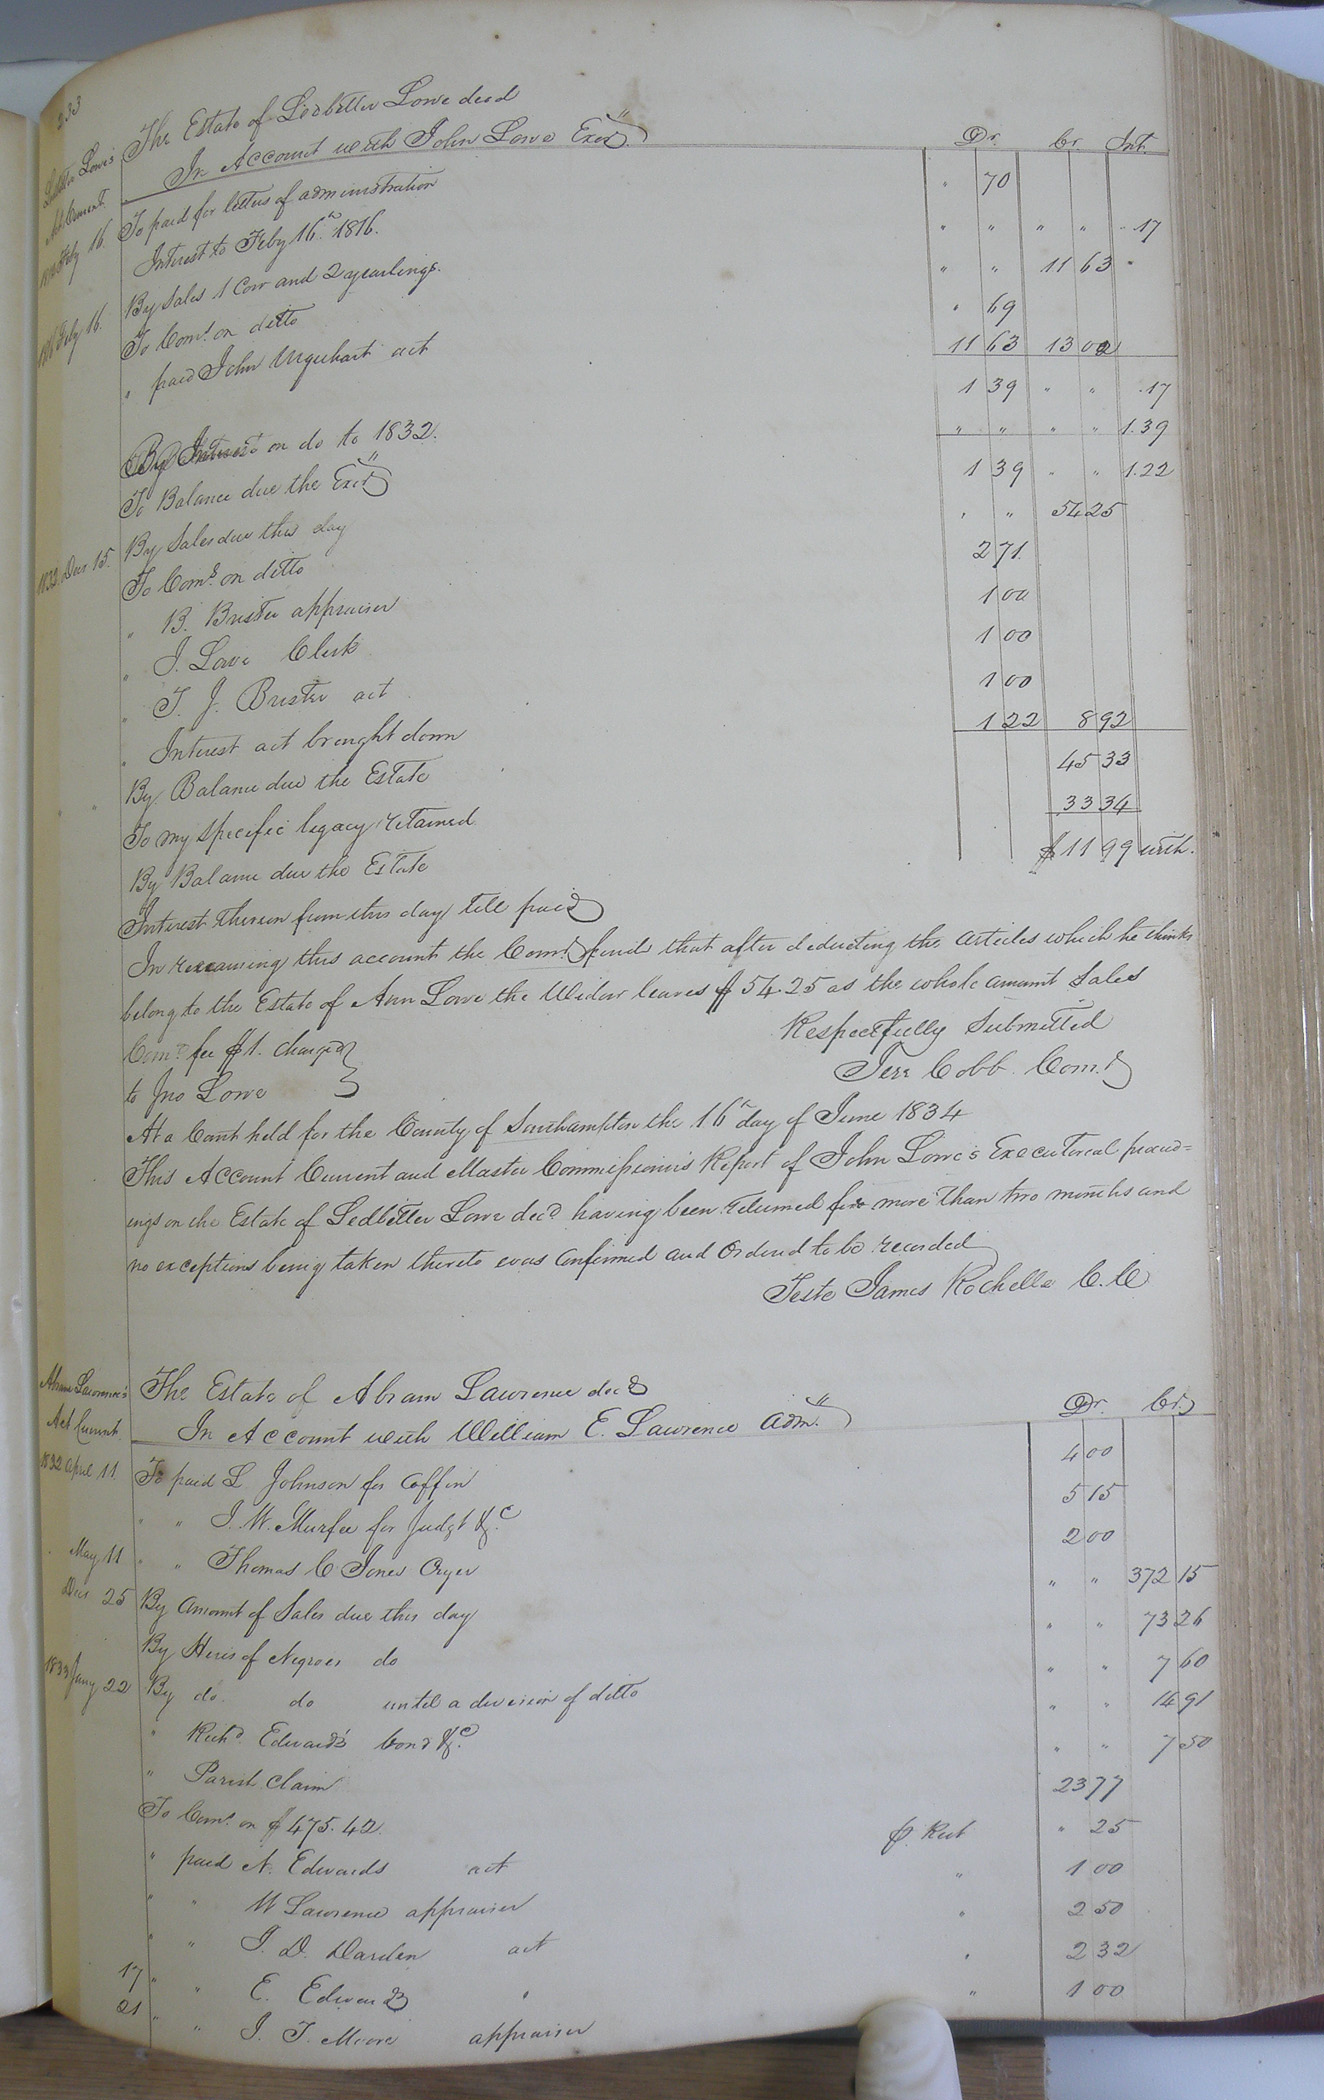 233
The Estate of Ledbetter Lowe decd Dr. Cr. Int.
In Account with John Lowe Exor
Ledbetter Lowe's
Act Current
To paid for letters of administration " 70
Feby 16 Interest to Feby 16th 1816. " " " " .17
By Sales 1 Cow and 2 yearlings. " " 11 63 "
1816 Feby 16 To Coms. on ditto " 69
" paid John Urquhart act 11 63 13 02
1 39 " " .17
By Interest on do to 1832. " " " " 1.39
To Balance due the Exor 1 39 " " 1.22
By Sales due this day " " 54 25
1832 Decr 15. To Coms. on ditto 2 71.
" B. Brister appraiser 1 00
" J. Love Clerk 1 00
" T. J. Brister act 1 00
" Interest act brought down 1 22 8 92
By Balance due the Estate 45 33
To my specific legacy retained 33 34
By Balance due the Estate $ 11 99 with.
Interest thereon from this day till paid
In recasing this account the Comr. finds that after deducting the articles which he thinks
belong to the Estate of Ann Lowe the Widow leaves $54.25 as the whole amount Sales
Respectfully Submitted
Comr. fee $1. charged
to Jno Lowe
Jere Cobb. Comr.
At a Court held for the County of Southampton the 16th day of June 1834
This Account Current and Master Commissioners Report of John Lowe's Executorial proceed=
ings on the Estate of Ledbetter Lowe decd having been returned for more than two months and
no exceptions being taken thereto was confirmed and Ordered to be recorded
Teste James Rochelle C.C
Abram Lawrence's
Act Current
The Estate of Abram Lawrence decd Dr. Cr.
In Account with William E. Lawrence Admr.
1832 April 11 To paid L Johnson for Coffin 4 00
" " J. W. Murfee for Judgt &c 5 15
May 11 " " Thomas C Jones Cryer 2 00
Decr 25 By Amount of Sales due this day " " 372 15
By Hires of Negroes do " " 73 26
1833 Jany 22 By do. do until a division of ditto " " 7 60
" Richd. Edwards bond &c. " " 14 91
" Parish Claim " " 7 50
To Coms. on $475.42 23 77
" paid N. Edwards act p. Rect " 25
" " W Lawrence appraiser " 1 00
" " J. D. Darden act " 2 50
17 " " E. Edwards " " 2 32
21 " " J. T. Moore appraiser " 1 00